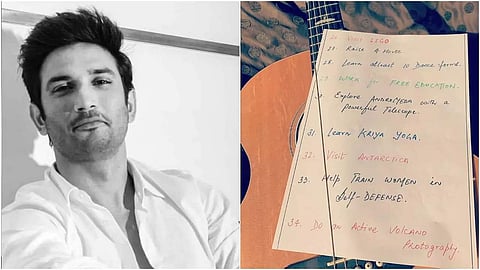 24. Visit LEGO
25. Raise A Horse
26. Learn atleast 10 Dance forms.
27. WORK for FREE EDUCATION.
Explore ANDROMEDA with a
powerful Telescope.
31. Learn KRIYA YOGA.
32. Visit ANTARCTICA
33. Help TRAIN WOMEN in
Self-DEFENSE.
34. Do an Active VOLCANO
Photography.